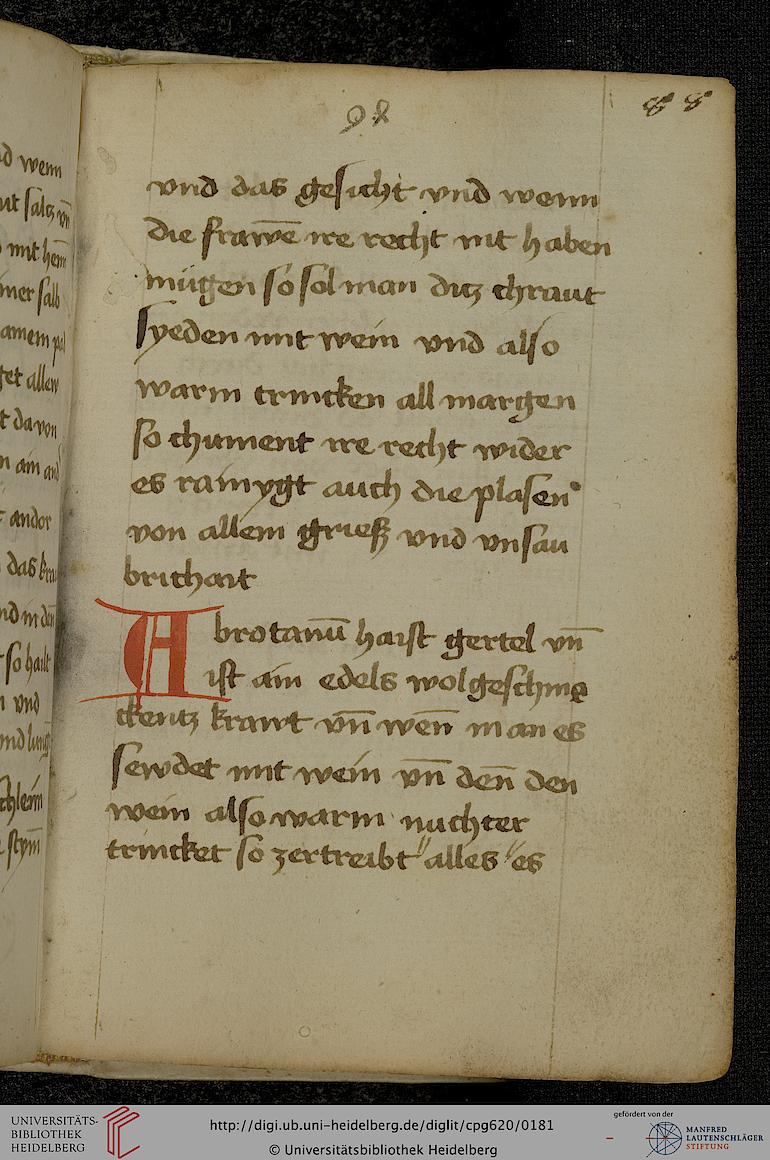 88
vnd das gesicht vnd wenn
die frawē ire recht nit haben
mügen so sol man ditz chraut
syeden mit wein vnd also
warm trincken all margen
so chument ire recht wider
es rainygt auch die plasen
von allem grieß vnd vnsau
brichait
Abrotanū haist gertel vn̄
ist ain edels wolgeschma
ckentz krawt vn̄ wen̄ man es
sewdet mit wein vn̄ den̄ den
wein also warm nuchter
trincket so zertreibt alles es
d wenn
mit saltz vn̄
get allen
t da von
andor
so hailt
vnd
UNIVERSITÄTS-
BIBLIOTHEK
HEIDELBERG
http://digi.ub.uni-heidelberg.de/diglit/cpg620/0181
© Universitätsbibliothek Heidelberg
gefördert von der
MANFRED
LAUTENSCHLÄGER
STIFTUNG